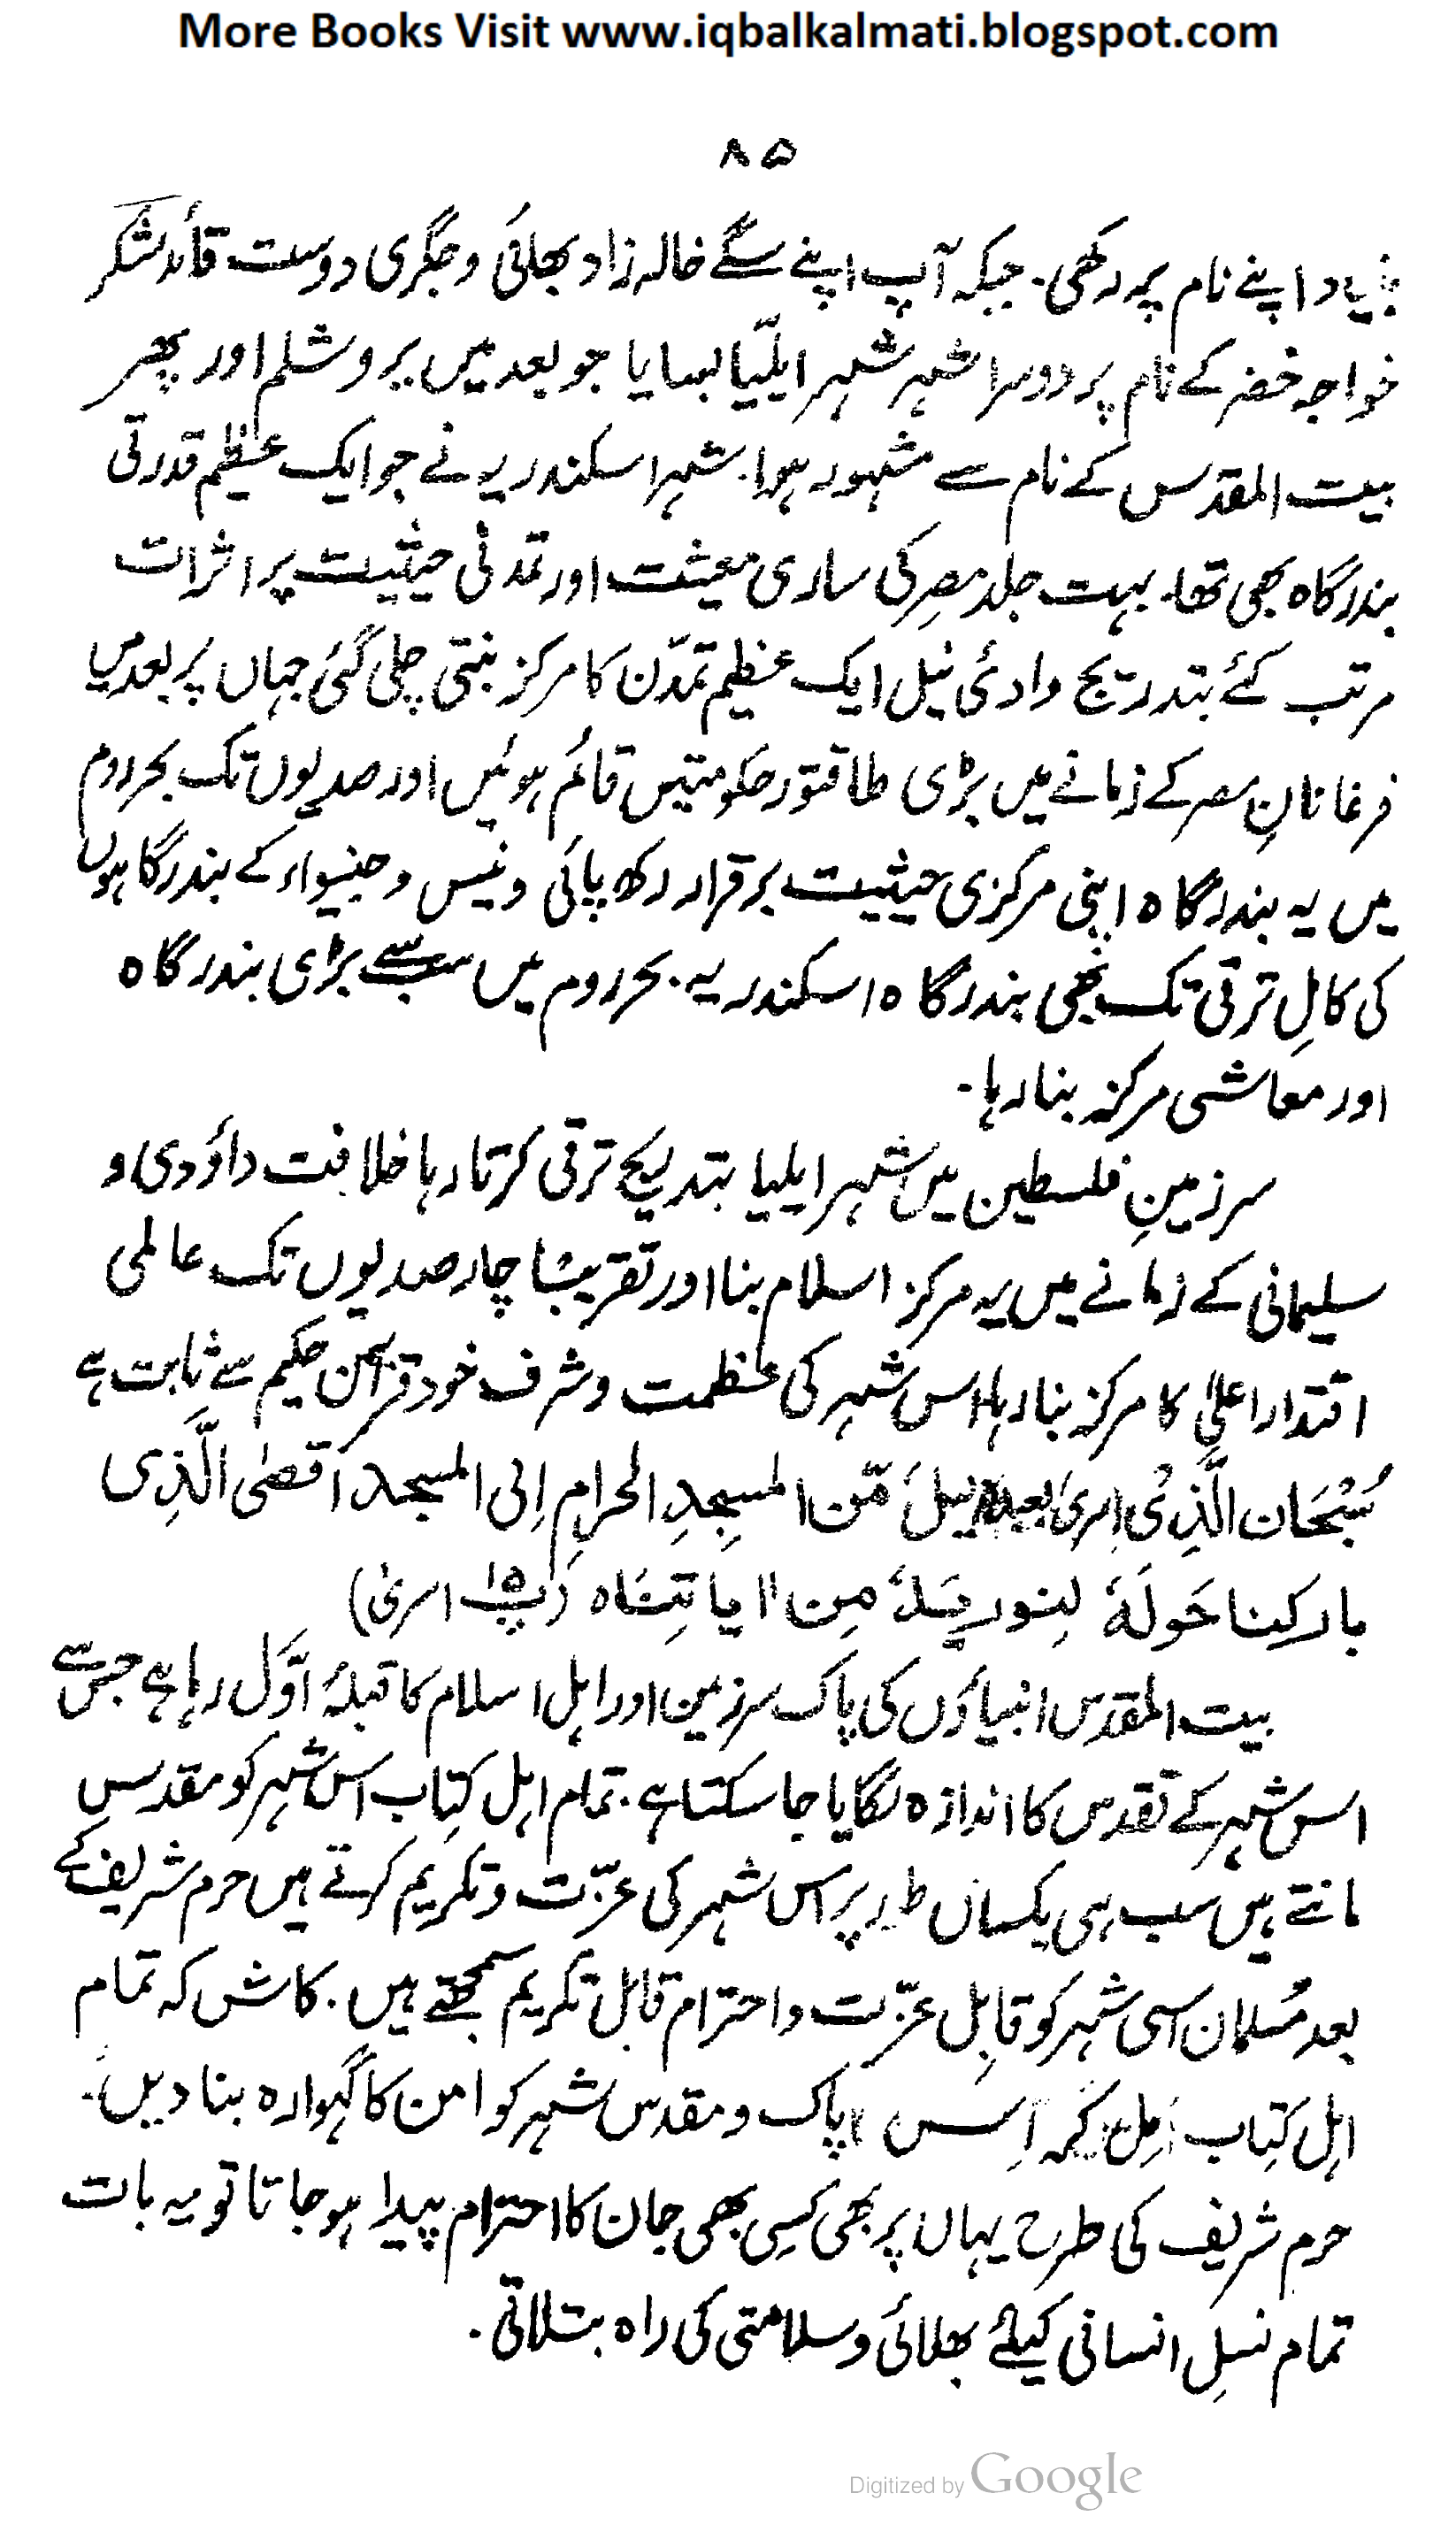 More Books Visit www.iqbalkalmati.blogspot.com
۸۵
بنیاد اپنے نام پر رکھی. جبکہ آپ اپنے سگے خالہ زاد بھائی و جگری دوست قائد لشکر
خواجہ خضر کے نام پر دوسرا شہر شہر ایلیّا بسایا جو بعد میں یروشلم اور پھر
بیت المقدس کے نام سے مشہور ہوا. شہر اسکندریہ نے جو ایک عظیم قدرتی
بندرگاہ بھی تھا۔ بہت جلد مصر کی ساری معیشت اور تمدنی حیثیت پر اثرات
مرتب کئے بتدریج وادئ نیل ایک عظیم تمدّن کا مرکز بنتی چلی گئی جہاں پر بعد میں
فرغانانِ مصر کے زمانے میں بڑی طاقتور حکومتیں قائم ہوئیں اور صدیوں تک بحرروم
میں یہ بندرگاہ اپنی مرکزی حیثیت برقرار رکھ پائی ونیس و جنیواء کے بندرگاہوں
کی کامل ترقی تک بھی بندرگاہ اسکندریہ. بحرروم میں سب سے بڑی بندرگاہ
اور معاشی مرکز بنا رہا۔
سرزمینِ فلسطین میں شہر ایلیا بتدریج ترقی کرتا رہا خلافت داؤدی و
سلیمانی کے زمانے میں یہ مرکز اسلام بنا اور تقریبًا چار صدیوں تک عالمی
اقتدار اعلیٰ کا مرکز بنا رہا اس شہر کی عظمت و شرف خود قرآن حکیم سے ثابت ہے
سُبْحَان الَّذِیْ اسریٰ بعبدہٖ لیلً مّن المسجِدِ الحرامِ اِلی المسجد اَقصٰی الَّذِی
بارکنا حَولَہٗ لِنوریَہٗ مِن اٰیاتِنَاہ (پ۱۵ اسریٰ)
بیت المقدس انبیاؤں کی پاک سرزمین اور اہل اسلام کا قبلۂ اوّل رہا ہے جس سے
اس شہر کے تقدس کا اندازہ لگایا جا سکتا ہے. تمام اہل کتاب اس شہر کو مقدس
مانتے ہیں سب ہی یکساں طور پر اس شہر کی عزّت و تکریم کرتے ہیں حرم شریف کے
بعد مُسلمان اسی شہر کو قابِل عزّت و احترام قابل تکریم سمجھتے ہیں. کاش کہ تمام
اہل کتاب مِل کر اِس پاک و مقدس شہر کو امن کا گہوارہ بنا دیں۔
حرم شریف کی طرح یہاں پر بھی کسِی بھی جان کا احترام پیدا ہو جاتا تو یہ بات
تمام نسلِ انسانی کیلئے بھلائی و سلامتی کی راہ بتلاتی.
Digitized by Google